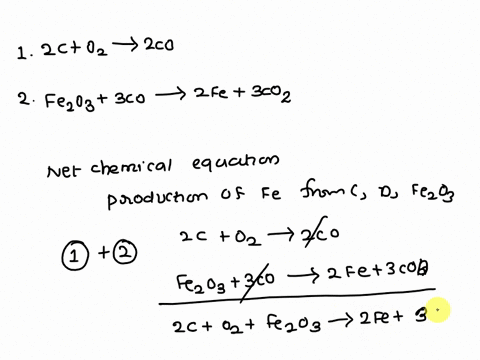 1. 2C + O₂ → 2CO
2. Fe₂O₃ + 3CO → 2Fe + 3CO₂
Net chemical equation
production of Fe from C, O, Fe₂O₃
① + ② 2C + O₂ → 2CO
Fe₂O₃ + 3CO → 2Fe + 3CO
2C + O₂ + Fe₂O₃ → 2Fe + 3